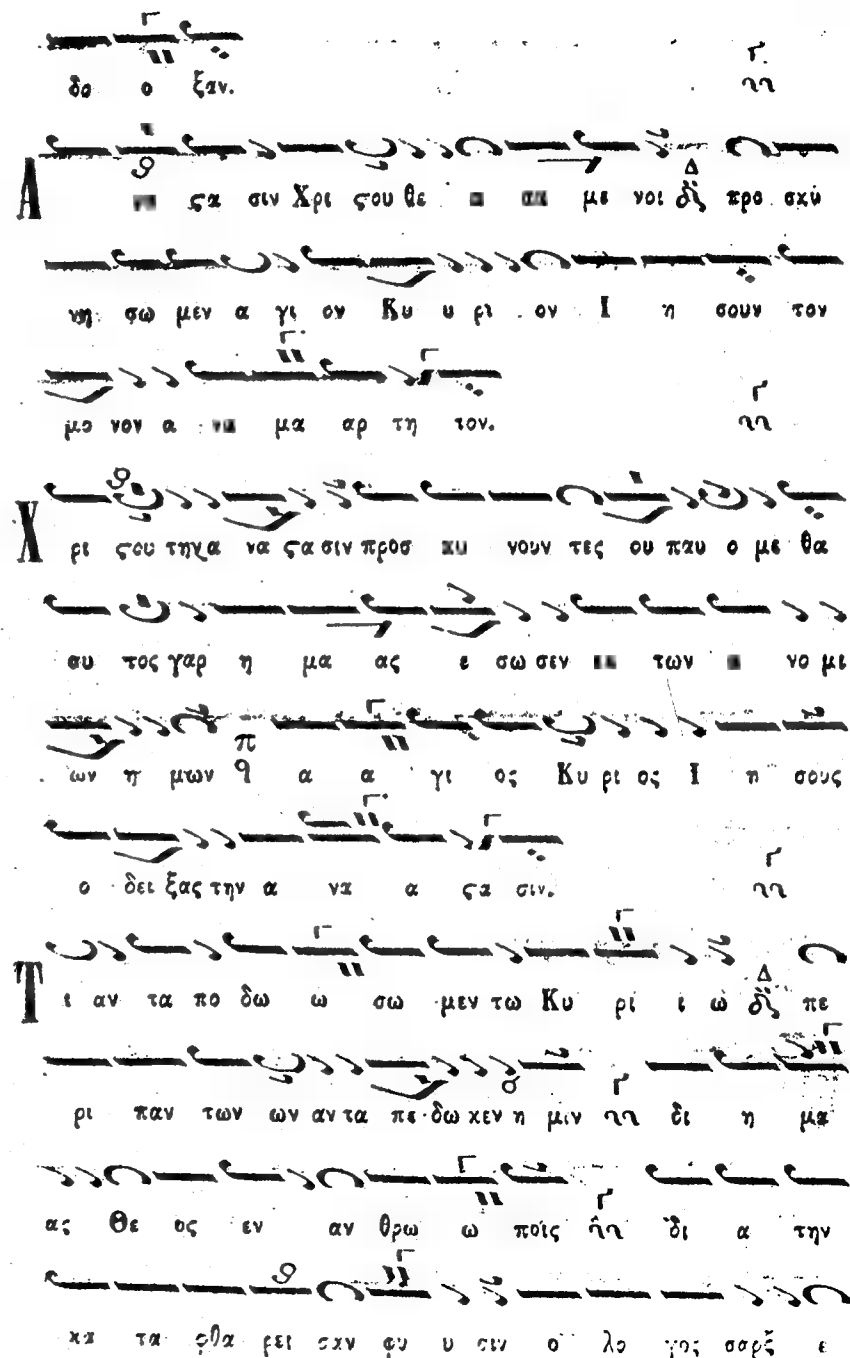 δο ο ξαν.
Α να ϛα σιν Χρι ϛου θε α αα με νοι προ σκυ
νη σω μεν α γι ον Κυ υ ρι ον Ι η σουν τον
μο νον α να μα αρ τη τον.
Χ ρι ϛου την α να ϛα σιν προσ κυ νουν τες ου παυ ο με θα
αυ τος γαρ η μα ας ε σω σεν εκ των α νο μι
ων η μων α α γι ος Κυ ρι ος Ι η σους
ο δει ξας την α να α ϛα σιν.
Τ ι αν τα πο δω ω σω μεν τω Κυ ρι ι ω πε
ρι παν των ων αν τα πε δω κεν η μιν δι η μα
ας Θε ος εν αν θρω ω ποις δι α την
κα τα φθα ρει σαν φυ υ σιν ο λο γος σαρξ ε